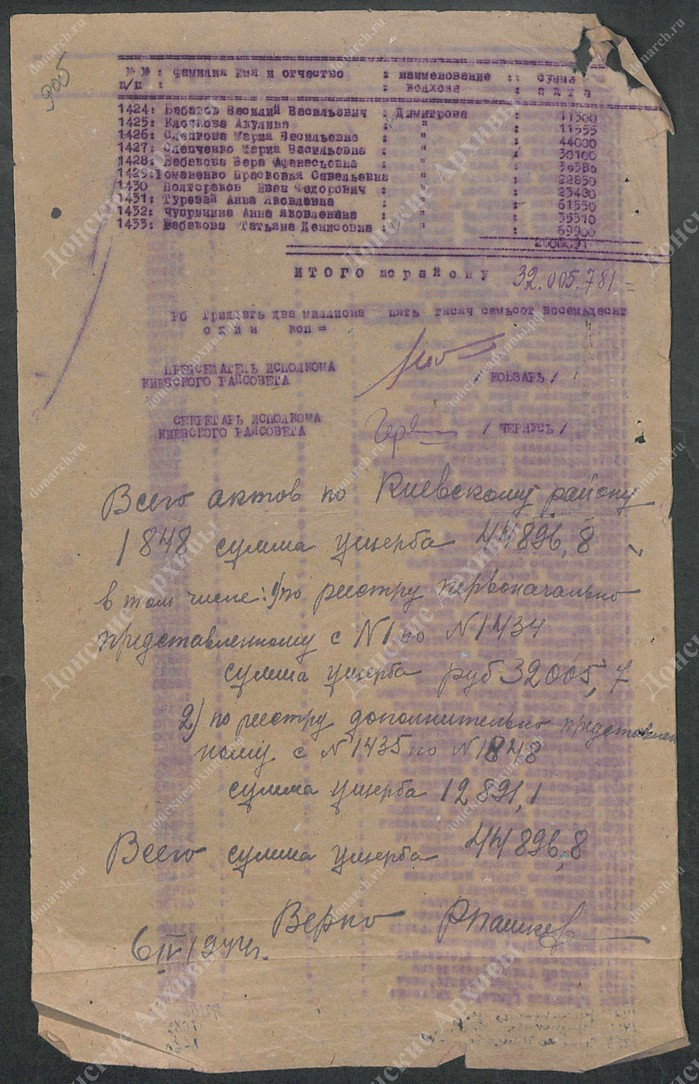 905
№ № : Фамилия Имя и отчество : наименование :: сумма
п/п : : колхоза :
1424: Бабаков Василий Васильевич : Димитрова : 11300
1425: Клочкова Акулина : " : 11555
1426: Слепкова Мария Васильевна : " : 44000
1427: Слепченко Мария Васильевна : " : 30100
1428: Бабакова Вера Афанасьевна : " :
1429: Романенко Прасковья Савельевна " : 22850
1430 Полтораков Иван Федорович : " : 23480
1431: Туровай Анна Яковлевна : " : 61550
1432: Чуприцина Анна Яковлевна : " : 35310
1433: Бабакова Татьяна Денисовна : " : 69900
ИТОГО по району 32.005.781=
Рб Тридцать два миллиона пять тысяч семьсот восемьдесят
один коп=
ПРЕДСЕДАТЕЛЬ ИСПОЛКОМА
КИЕВСКОГО РАЙСОВЕТА / КОБЗАРЬ /
СЕКРЕТАРЬ ИСПОЛКОМА
КИЕВСКОГО РАЙСОВЕТА / ЧЕРНУСЬ /
Всего актов по Киевскому району
1848 сумма ущерба 44896,8
в том числе: 1) по реестру первоначально
представленному с N1 по N1434
сумма ущерба руб 32005,7
2) по реестру дополнительно представлен
ному с N1435 по N1848
сумма ущерба 12891,1
Всего сумма ущерба 44896,8
Верно
6 IV 1944г.
Донские Архивы
donarch.ru